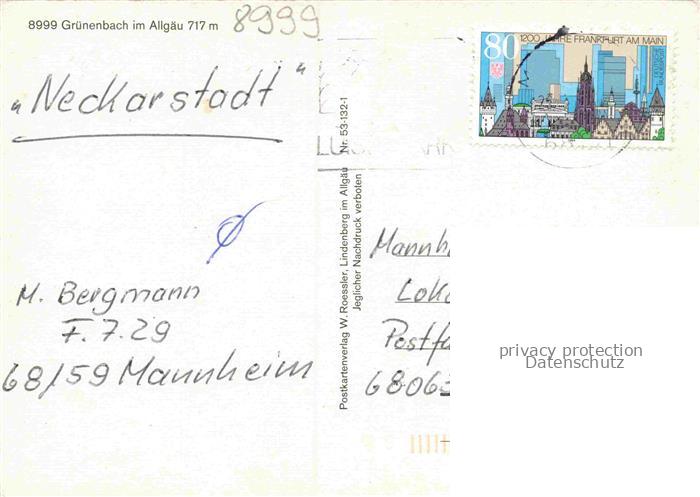 8999 Grünenbach im Allgäu 717 m
8999
"Neckarstadt"
80
1200 JAHRE FRANKFURT AM MAIN
DEUTSCHE BUNDESPOST
M. Bergmann
F. 7. 29
68159 Mannheim
Postkartenverlag W. Roessler, Lindenberg im Allgäu Nr. 53-132-1
Jeglicher Nachdruck verboten
Mannh
Loka
Postfa
68063
privacy protection
Datenschutz